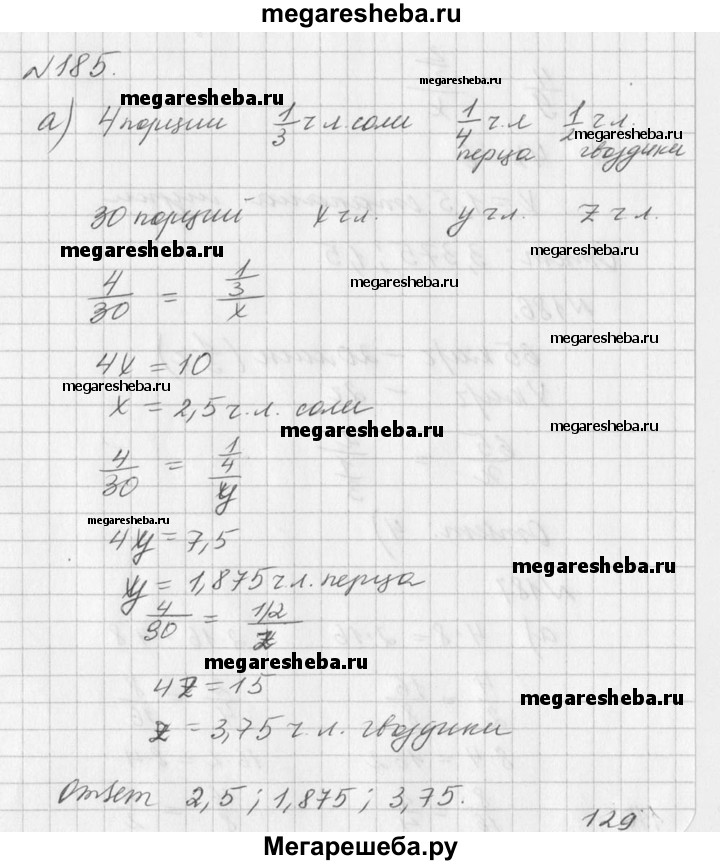 megaresheba.ru
№185.
megaresheba.ru
megaresheba.ru
а) 4 порции 1/3 ч л. соли 1/4 ч. л перца 1/2 ч л. гвоздики
megaresheba.ru
30 порций x ч л. y ч л. z ч л.
megaresheba.ru
megaresheba.ru
4/30 = 1/3/x
megaresheba.ru
megaresheba.ru
4x = 10
megaresheba.ru
x = 2,5 ч. л. соли
megaresheba.ru
megaresheba.ru
4/30 = 1/4/y
megaresheba.ru
4y = 7,5
megaresheba.ru
y = 1,875 ч л. перца
4/30 = 1/2/z
megaresheba.ru
4z = 15
megaresheba.ru
z = 3,75 ч. л. гвоздики
Ответ 2,5; 1,875; 3,75.
129
Мегарешеба.ру